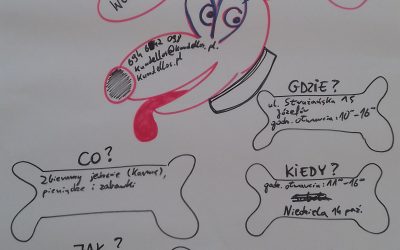 694 098
kundellos@kundellos.pl.
kundellos.pl
GDZIE?
ul. Strużańska 15
Józefów
godz. otwarcia: 10⁰⁰-16⁰⁰
CO?
Zbieramy jedzenie (karmę),
pieniądze i zabawki
KIEDY?
godz. otwarcia: 11⁰⁰-16⁰⁰
Niedziela 14 paź.
JAK?